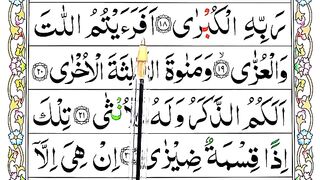 رَبِّهِ الْكُبْرٰى ﴿١٨﴾ اَفَرَءَيْتُمُ اللّٰتَ
وَالْعُزّٰى ﴿١٩﴾ وَمَنٰوةَ الثَّالِثَةَ الْاُخْرٰى ﴿٢٠﴾
اَلَكُمُ الذَّكَرُ وَلَهُ الْاُنْثٰى ﴿٢١﴾ تِلْكَ
اِذًا قِسْمَةٌ ضِيْزٰى ﴿٢٢﴾ اِنْ هِىَ اِلَّآ